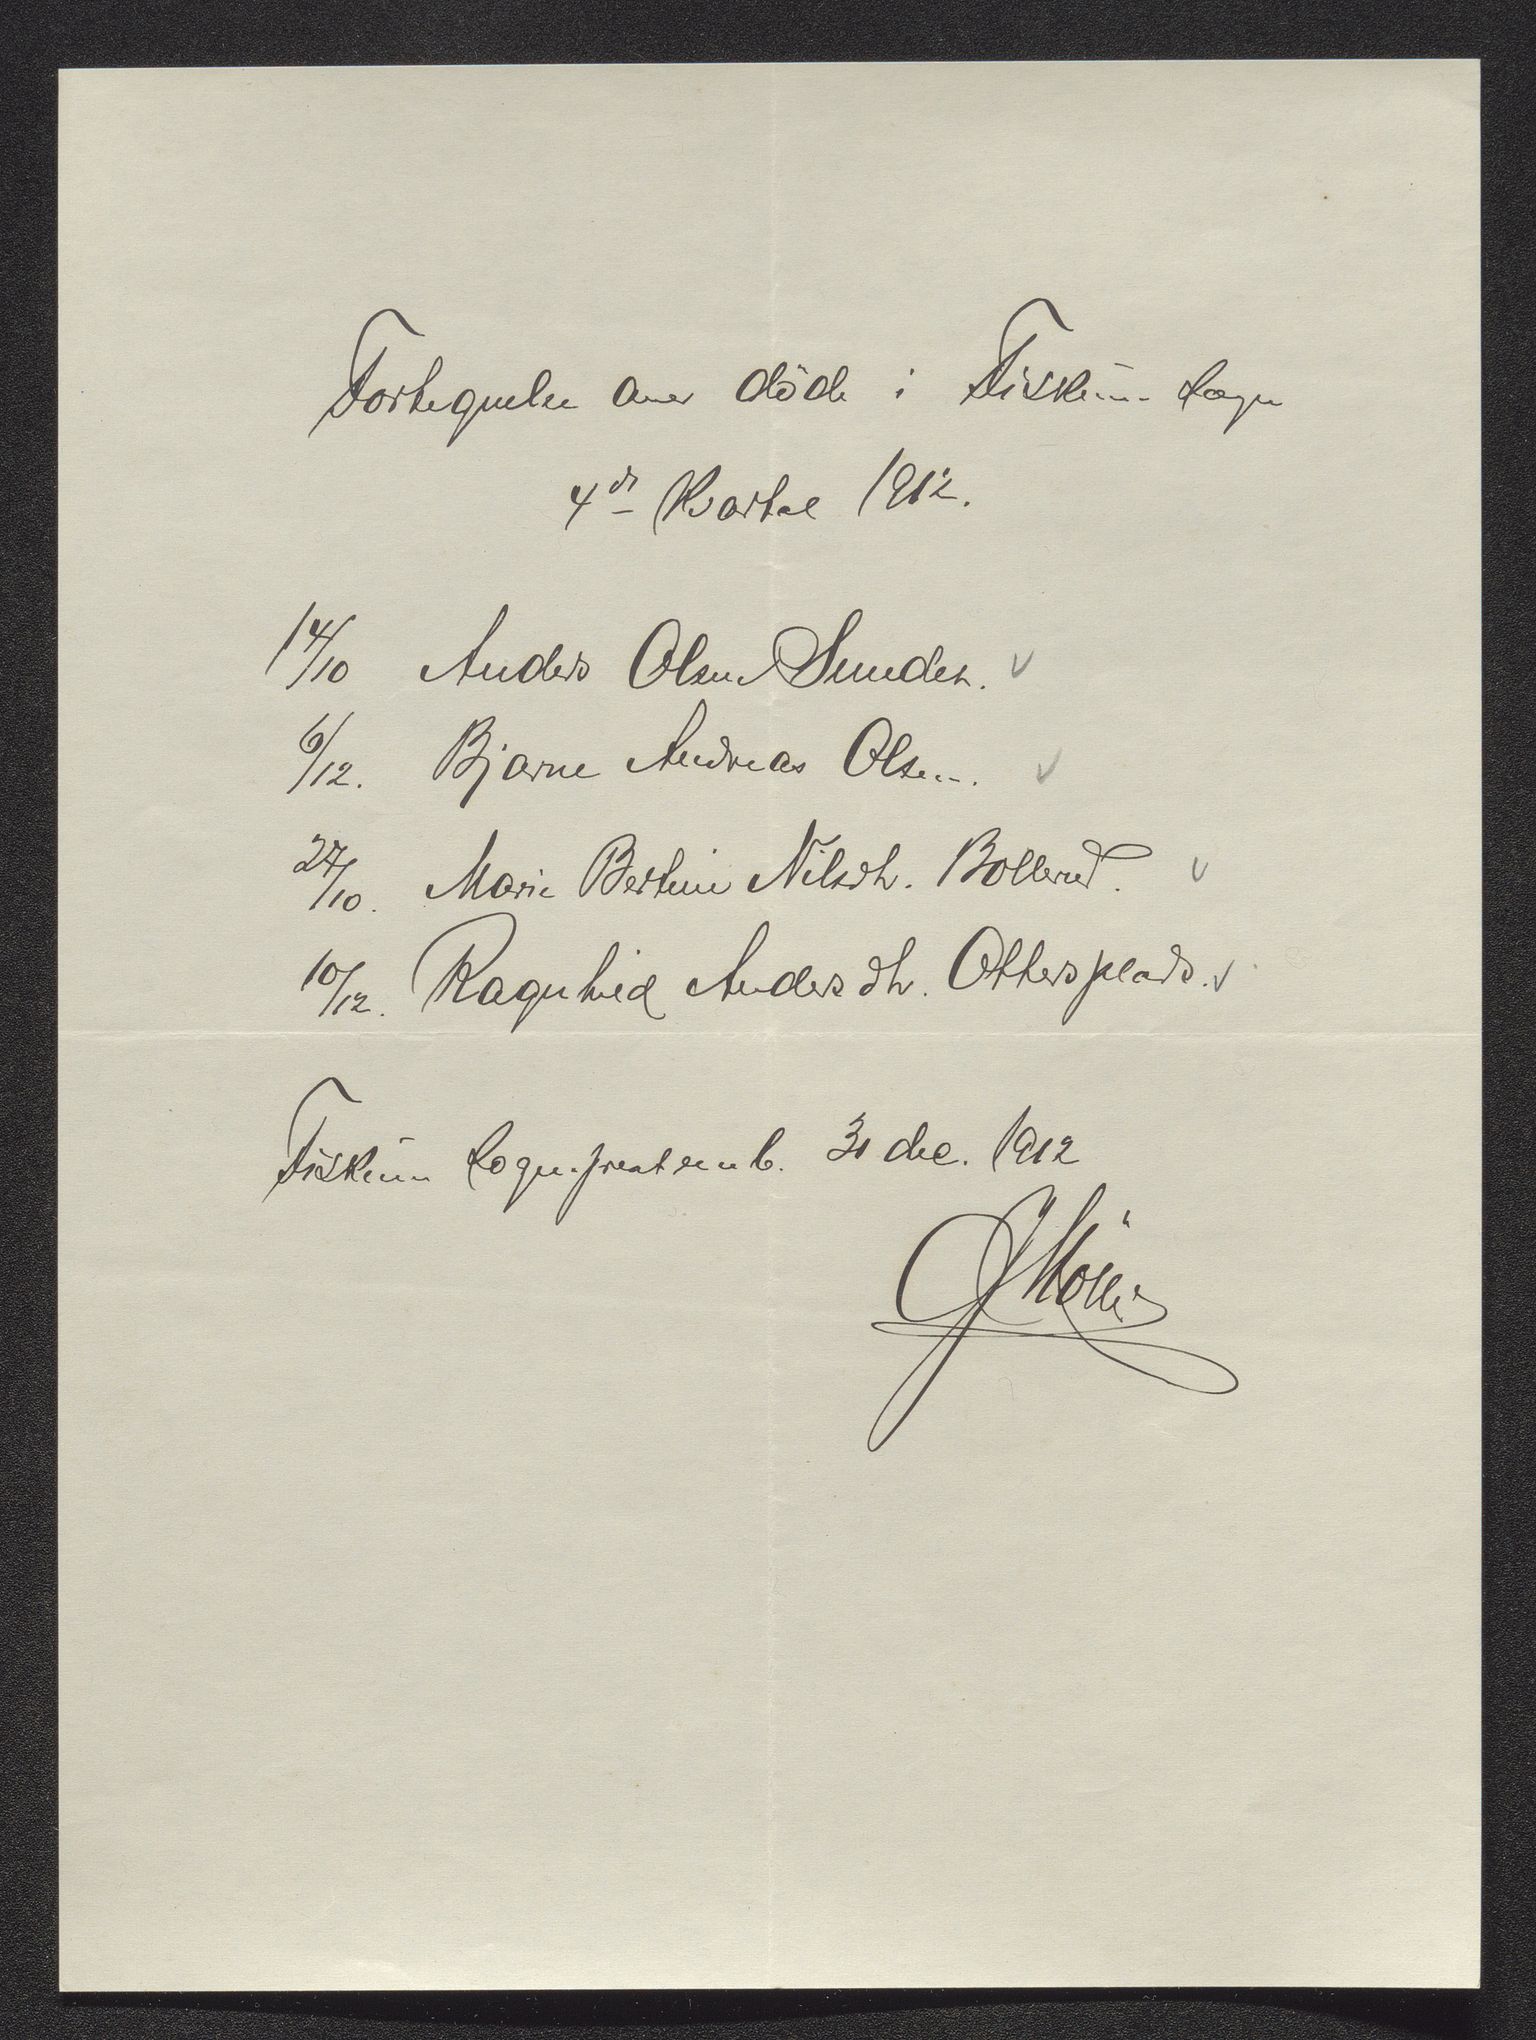 Fortegnelse over döde i Fiskum sogn
4de Kvartal 1912.
14/10 Anders Olsen Sunde. v
6/12. Bjarne Andreas Olsen. v
27/10. Marie Bertine Nilsdt. Bollerud. v
10/12. Ragnhild Andersdt. Ottersplads. v
Fiskum sogneprestemb. 31 dec. 1912